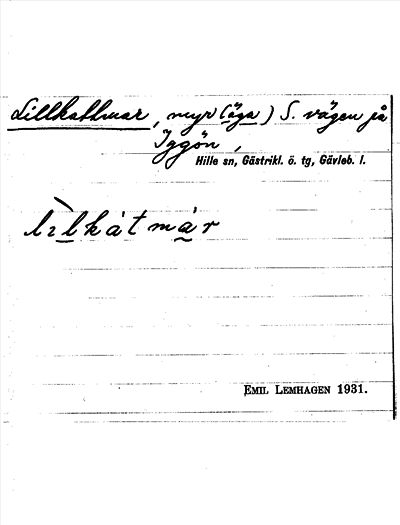 Lillkattmar, myr (äga) S. vägen på
Iggön,
Hille sn, Gästrikl. ö. tg, Gävleb. l.
lɩ̀lkátmàr
EMIL LEMHAGEN 1931.